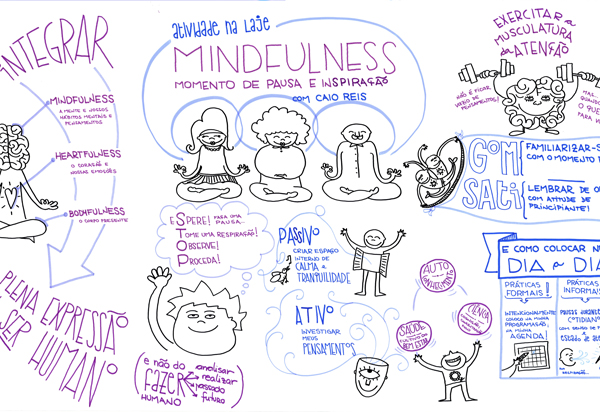 INTEGRAR
MINDFULNESS
A MENTE E NOSSOS
HÁBITOS MENTAIS E
PENSAMENTOS
HEARTFULNESS
O CORAÇÃO E
NOSSAS EMOÇÕES
BODHFULNESS
O CORPO PRESENTE
PLENA EXPRESSÃO
SER HUMANO
atividade na Laje
MINDFULNESS
MOMENTO DE PAUSA E INSPIRAÇÃO
COM CAIO REIS
ESPERE! FAÇA UMA
PAUSA...
TOME UMA RESPIRAÇÃO!
OBSERVE!
PROCEDA!
e não do
FAZER
HUMANO
analisar
realizar
passado
futuro
PASSIVO
CRIAR ESPAÇO
INTERNO DE
CALMA E
TRANQUILIDADE
ATIVO
INVESTIGAR
MEUS
PENSAMENTOS
AUTO
CONHECIMENTO
SAÚDE
BEM ESTAR
CIÊNCIA
EXERCITAR A
MUSCULATURA
DA ATENÇÃO
NÃO É FICAR
VAZIO DE
PENSAMENTOS!
MAS...
QUANDO
O QUE
PARA V
GOM
SATI
FAMILIARIZAR-S
COM O MOMENTO P
LEMBRAR DE O
COM ATITUDE DE
PRINCIPIANTE!
E COMO COLOCAR N
DIA A DIA
PRÁTICAS
FORMAIS!
INTENCIONALMENTE
COLOCO NA MINHA
PROGRAMAÇÃO,
NA MINHA
AGENDA!
PRÁTICAS
INFORMAIS!
PAUSAS DURANTE
COTIDIANO